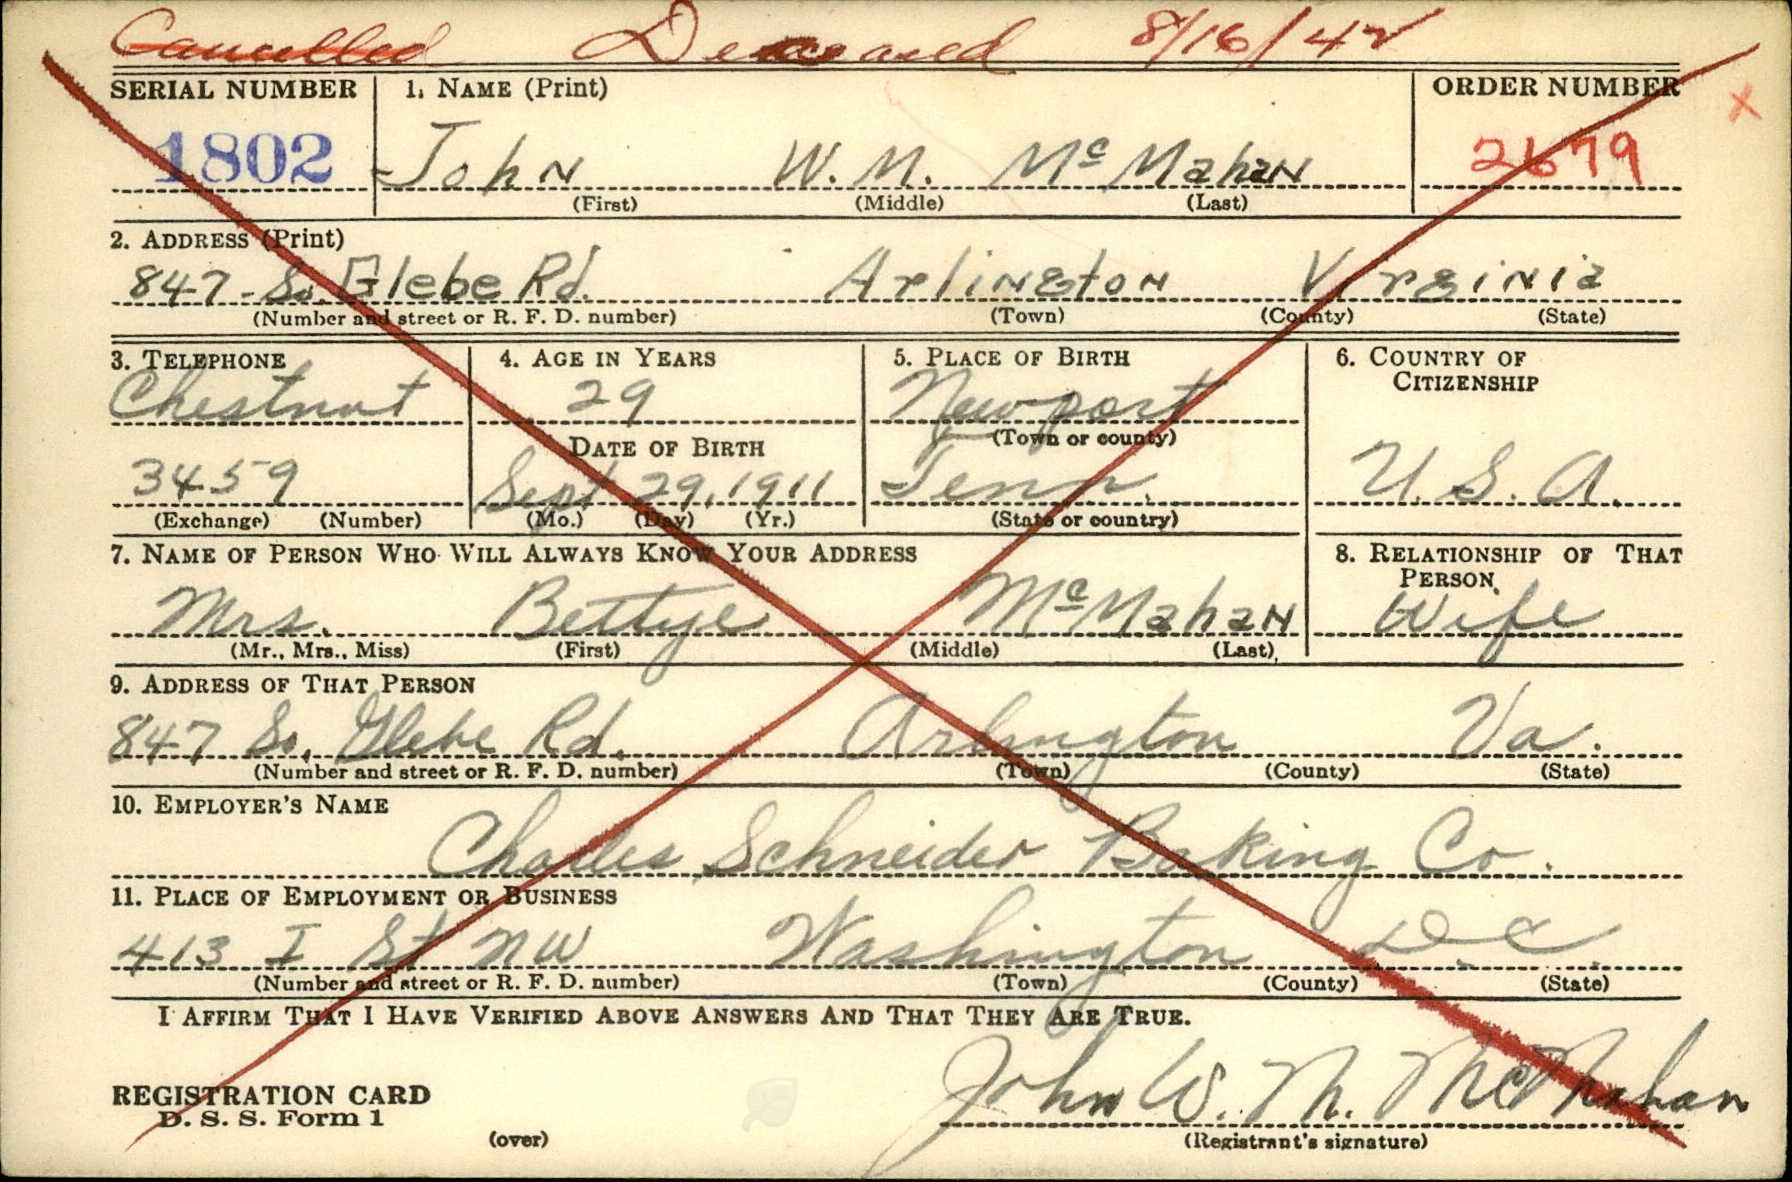 Cancelled Deceased 8/16/42
SERIAL NUMBER 1. NAME (Print) ORDER NUMBER
1802 John W. M. McMahan 2679
(First) (Middle) (Last)
2. ADDRESS (Print)
847 - So. Glebe Rd. Arlington Virginia
(Number and street or R. F. D. number) (Town) (County) (State)
3. TELEPHONE 4. AGE IN YEARS 5. PLACE OF BIRTH 6. COUNTRY OF
CITIZENSHIP
Chestnut 29 Newport
DATE OF BIRTH (Town or county)
3459 Sept 29, 1911 Tenn. U. S. A.
(Exchange) (Number) (Mo.) (Day) (Yr.) (State or country)
7. NAME OF PERSON WHO WILL ALWAYS KNOW YOUR ADDRESS 8. RELATIONSHIP OF THAT
PERSON
Mrs. Bettye McMahan Wife
(Mr., Mrs., Miss) (First) (Middle) (Last)
9. ADDRESS OF THAT PERSON
847 So. Glebe Rd. Arlington Va.
(Number and street or R. F. D. number) (Town) (County) (State)
10. EMPLOYER'S NAME
Charles Schneider Baking Co.
11. PLACE OF EMPLOYMENT OR BUSINESS
413 I St NW Washington D.C.
(Number and street or R. F. D. number) (Town) (County) (State)
I AFFIRM THAT I HAVE VERIFIED ABOVE ANSWERS AND THAT THEY ARE TRUE.
John W. M. McMahan
REGISTRATION CARD
D. S. S. Form 1
(over) (Registrant's signature)